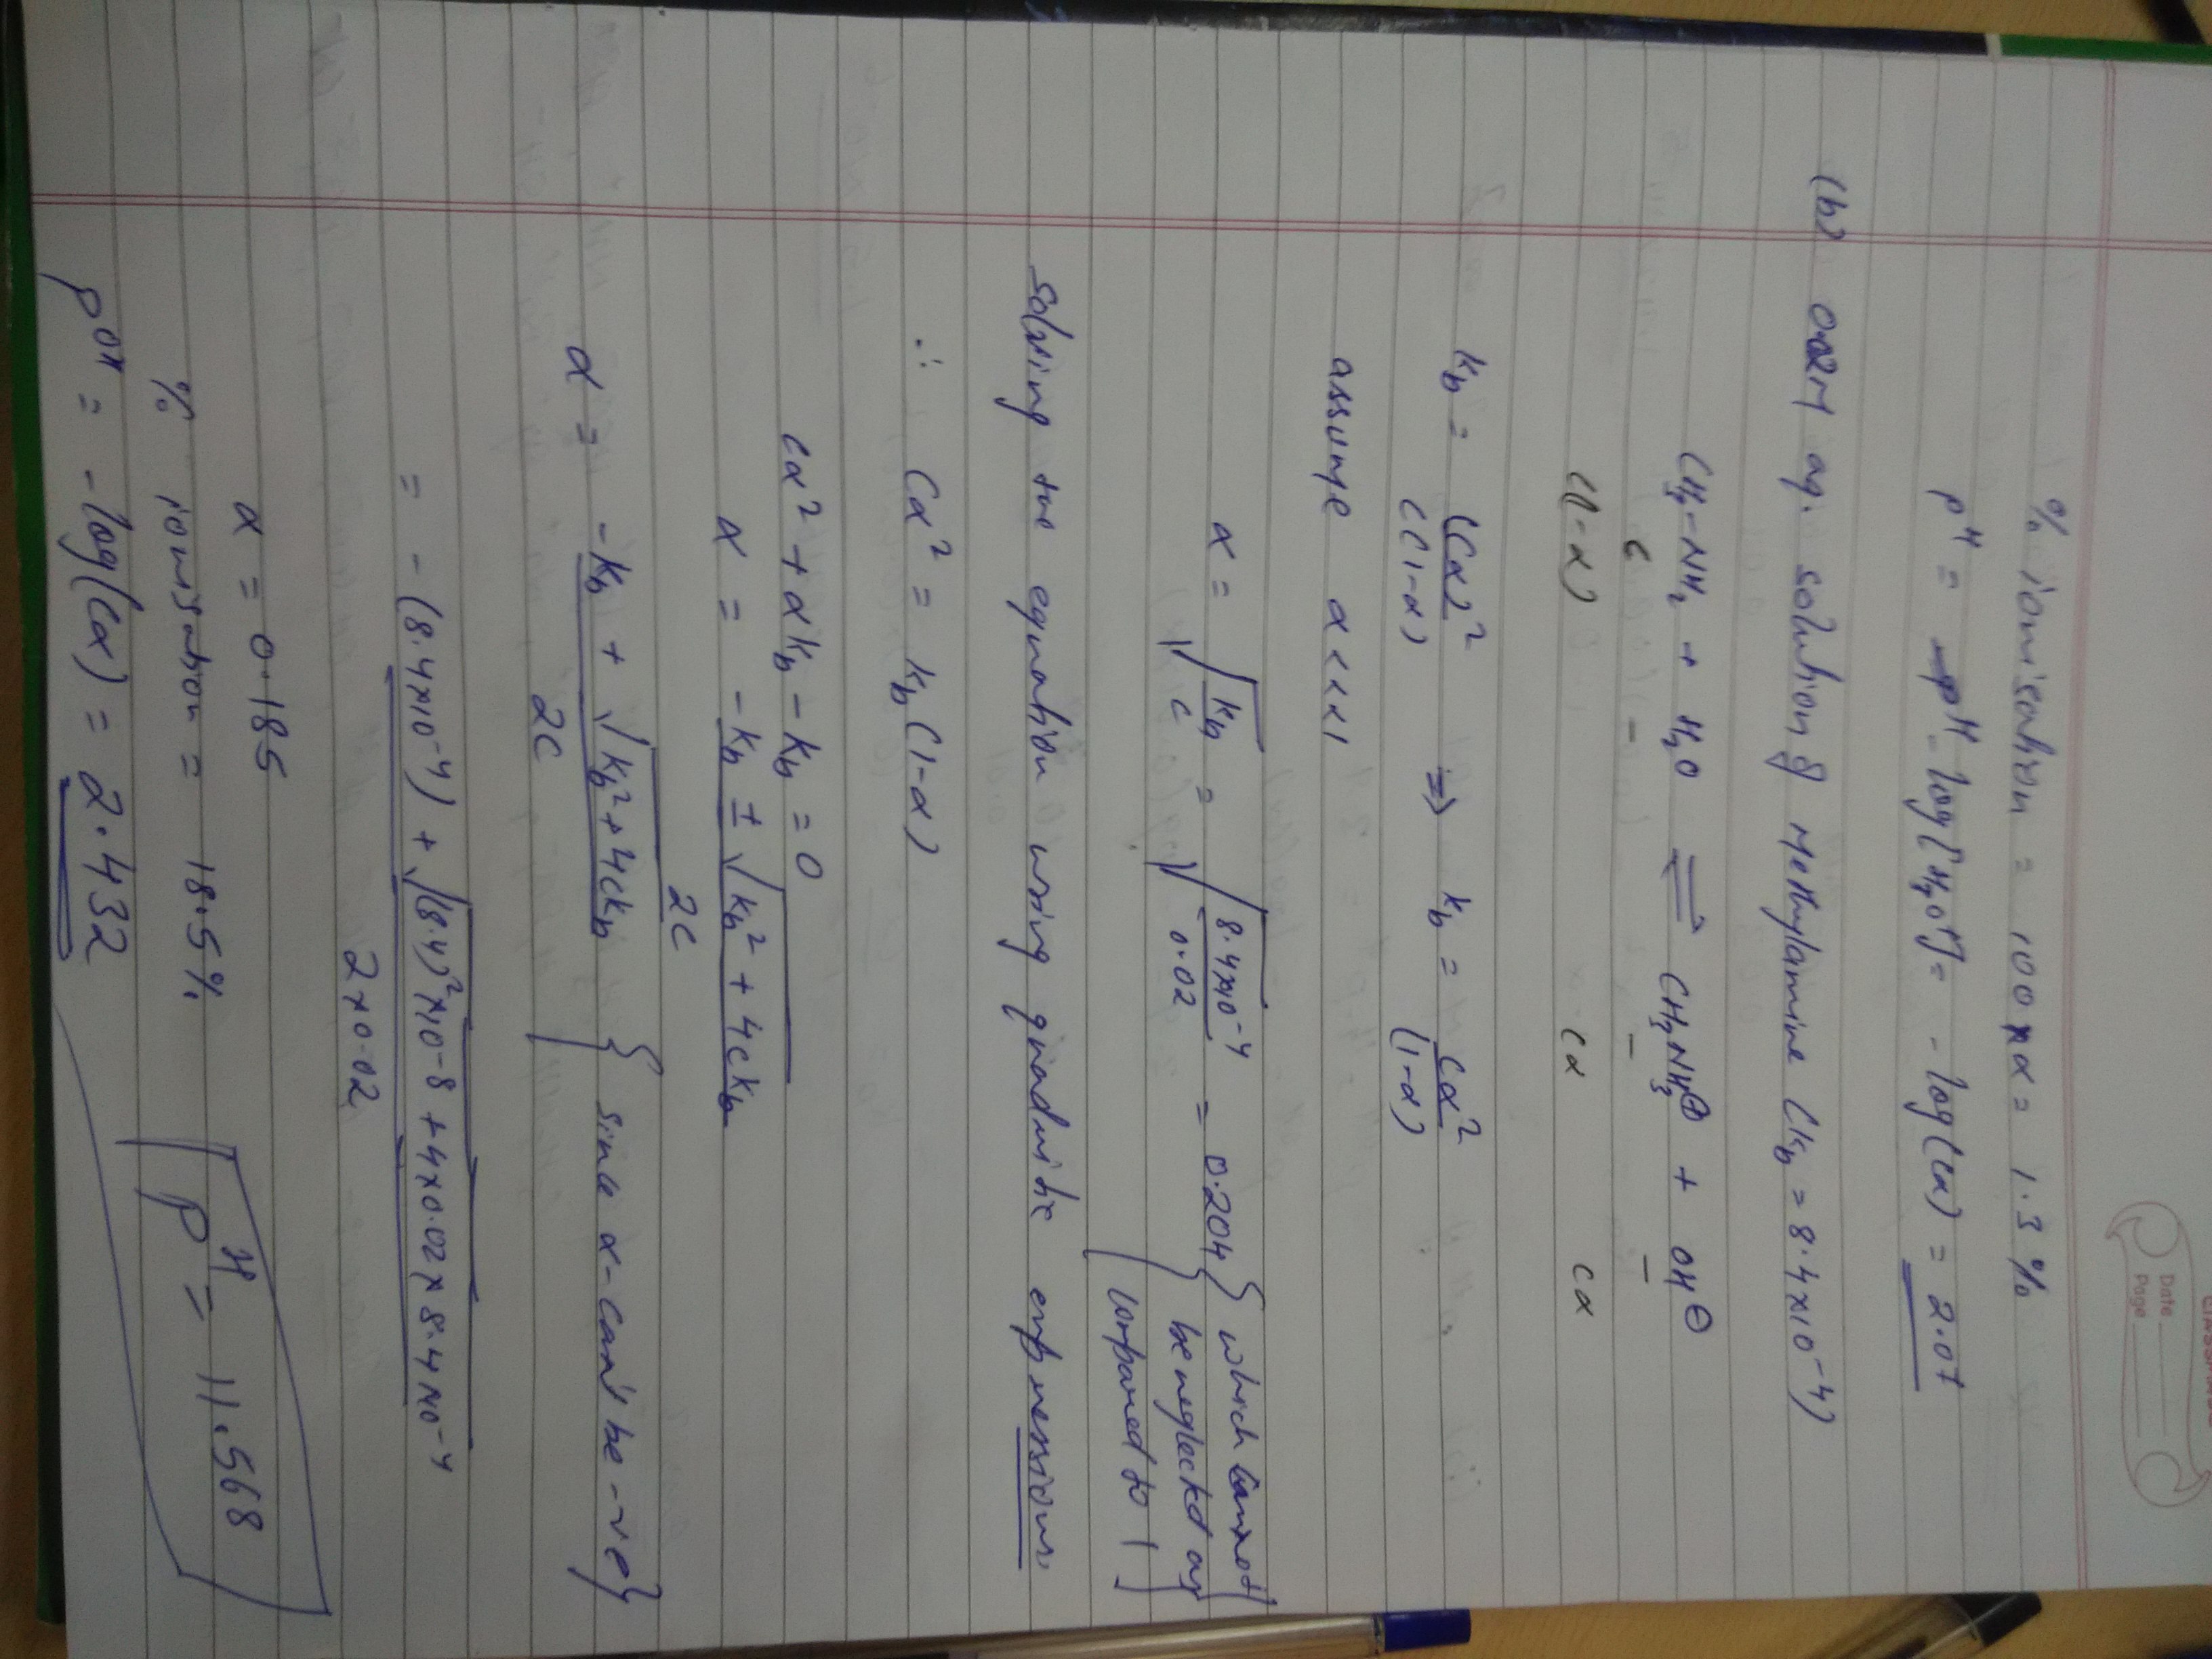 Date
Page
% ionisation = 100 x α = 1.3 %
pH = - log[H3O+] = - log(cα) = 2.07
(b) 0.02M aq. solution of Methylamine (kb = 8.4x10⁻⁴)
CH3-NH2 + H2O ⇌ CH3NH3⊕ + OH⊖
c - - -
c(1-α) cα cα
kb = (cα)²/c(1-α) ⇒ kb = cα²/(1-α)
assume α<<<1
α = √(kb/c) = √(8.4x10⁻⁴/0.02) = 0.204 {which cannot be neglected as compared to 1}
solving the equation using quadratic expression.
∴ cα² = kb(1-α)
cα² + αkb - kb = 0
α = (-kb ± √(kb² + 4ckb))/2c
α = (-kb + √(kb² + 4ckb))/2c {since α-can't be -ve}
= (-(8.4x10⁻⁴) + √((8.4)²x10⁻⁸ + 4x0.02x8.4x10⁻⁴))/2x0.02
α = 0.185
% ionisation = 18.5%
pOH = -log(cα) = 2.432
pH = 11.568